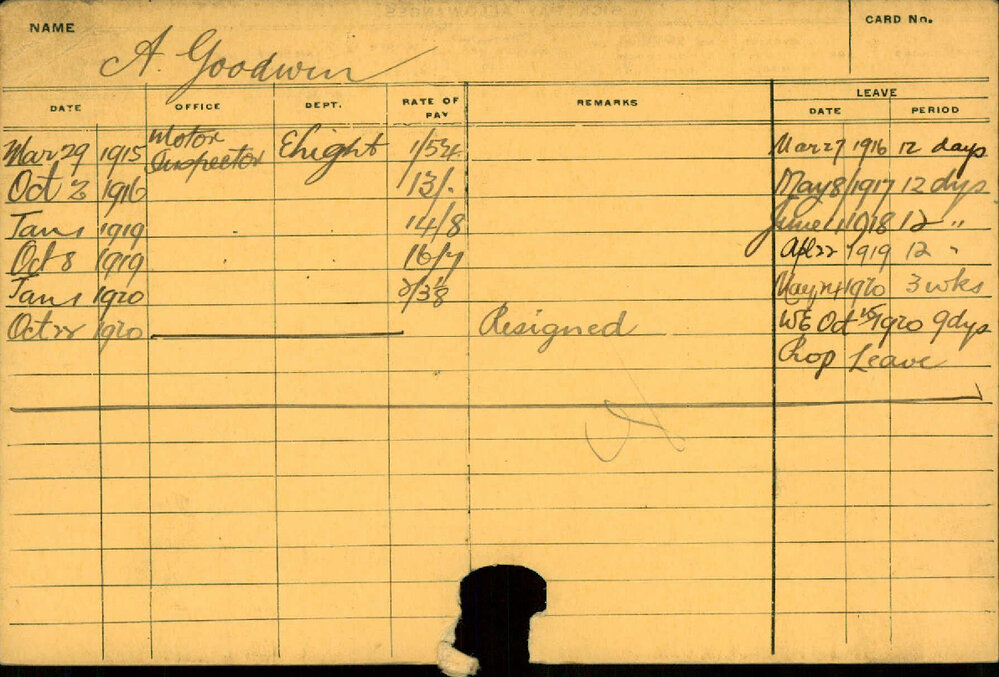 NAME A. Goodwin CARD No.
LEAVE
DATE OFFICE DEPT. RATE OF PAY REMARKS DATE PERIOD
Mar 29 1915 Motor Inspector Elight Mar 27 1916 12 days
Oct 2 1916 13/. May 8 1917 12 dys
Jan 1 1919 14/8 June 1918 12 "
Oct 8 1919 16/7 Apl 22 1919 12 "
Jan 1 1920 May 24 1920 3 wks
Oct 22 1920 Resigned WE Oct 15 1920 9 dys
Prop Leave